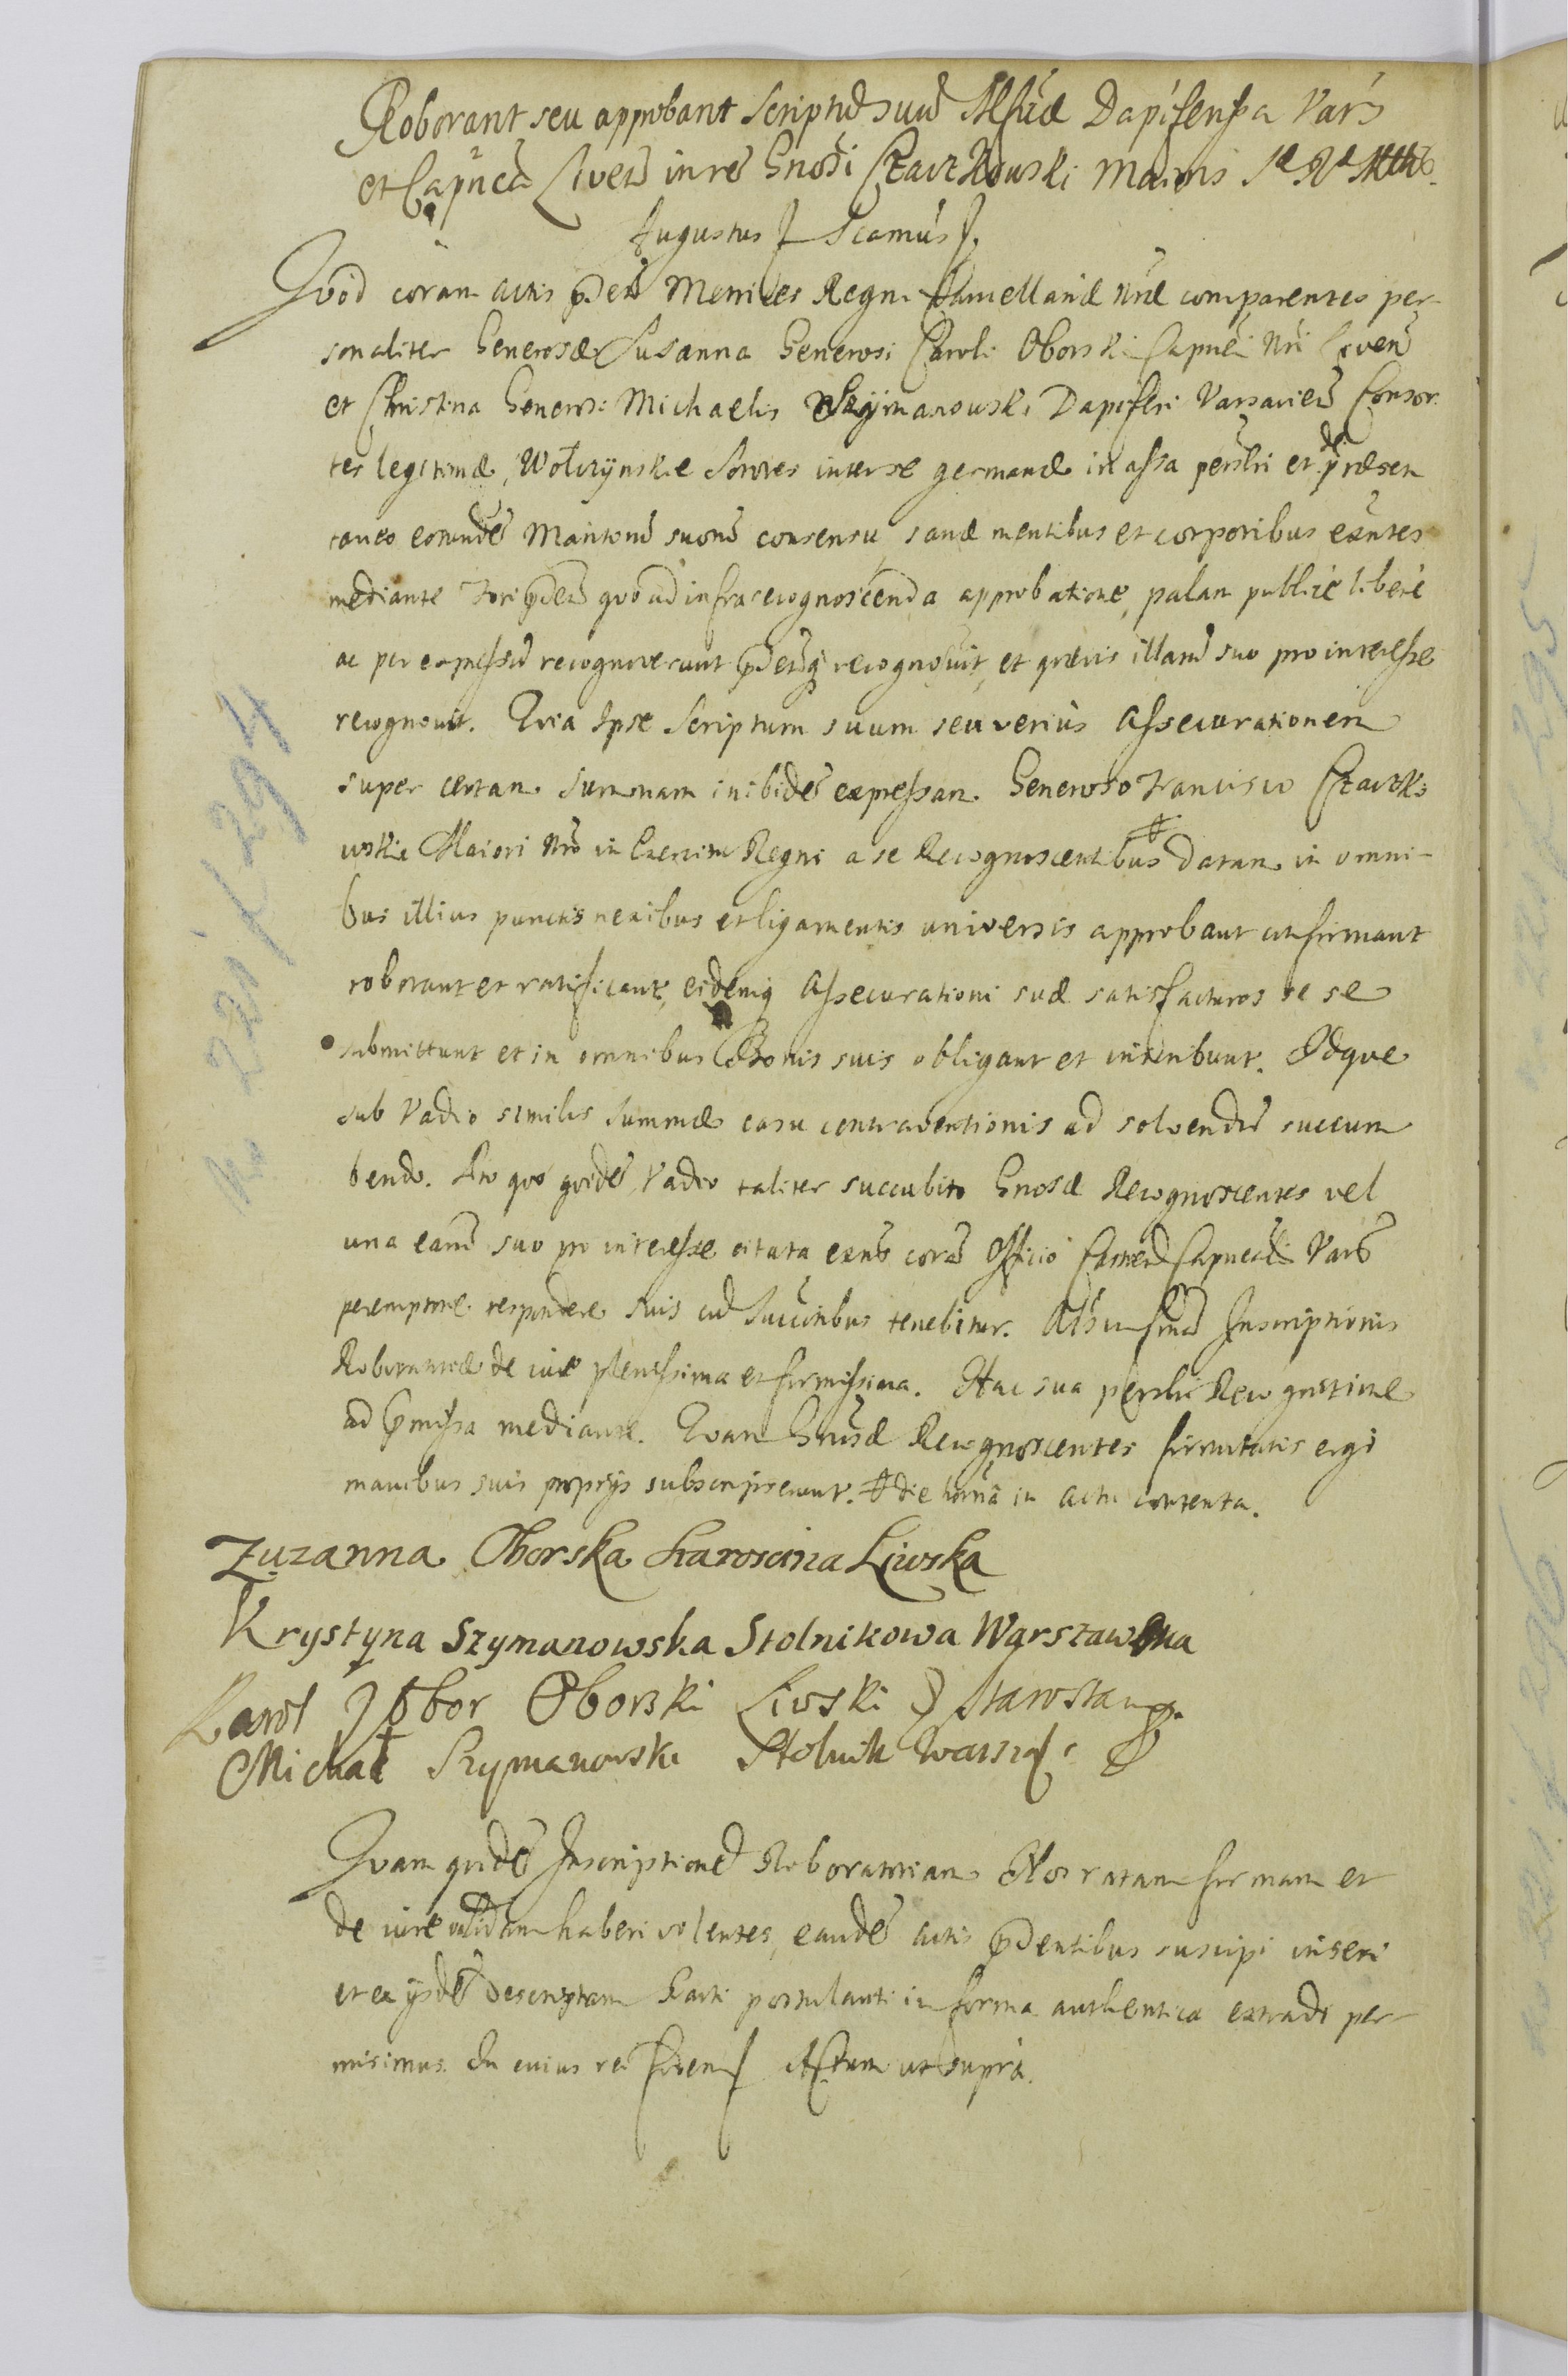 Roborant seu approbant Scriptũ suũ Dapiferssa Vars
et Capnea Liveñ in rẽ Gnosi Czaczkowski Maioris
Augustus Scamus
Quod coram actis Metrices Regni Cancellariæ Nræ comparentes per-
sonaliter Generosæ Susanna Generosi Caroli Oborski Capnei Nri Livẽn
et Christina Generosi Michaelis Szÿmanowski Dapiferi Varsavieñ Consor
tes legitimæ, Wołczÿnskie Sorores inter se germanæ in assa personli et de præsen
taneo eorundẽ Maritorũ suorũ consensu sanæ mentibus et corporibus exñtes
mediante quoad infra recognoscenda approbatione, palam publicè liberè
ac per expressũ recognoverunt recognovit, et quævis illarũ suo pro interesse
recognovit. Quia Ipsæ Scriptum suum seu verius Assecurationem
super certam Summam inibidẽ expressam Generoso Francisco Czaczko
wskie Maiori Nro in Exercitu Regni a se Recognoscentibus datam in omni-
bus illius punctis nexibus et ligamentis universis approbant confirmant
roborant et ratificant, eidemq Assecurationi suæ satisfacturos se se
submittunt et in omnibus Bonis suis obligant et inscribunt. Idque
sub Vadio similis Summæ casu contraventionis ad solvendũ succum
bendo. Pro quo quidẽ Vadio taliter succubito Gnosæ Recognoscentes vel
una earũ suo pro interesse citata exñs corã Officio Castreñ Capneali Vars
peremptorie respondere suis cũ Succribus tenebitur. Inscriptionis
Roboratoriæ de iure plenissima et firmissima. Hac sua personli Recognitione
ad præmissa mediante. Quam Gnosæ Recognoscentes firmitatis ergò
manibus suis proprÿs subscripserunt. # die hornã in actu contenta.
Zuzanna Oborska Starościna Liwska
Krystyna Szymanowska Stolnikowa Warszawska
Karol Obor Oborski Liwski Starosta
Michał Szymanowski Stolnik Warsz
Quam quidẽ Inscriptionẽ Roboratoriam Nos ratam firmam et
de iure validam haberi volentes, eandẽ actis præsentibus suscipi inseri
et ex ÿsdẽ descriptam Parti postulanti in forma authentica extradi per-
misimus. In cuius rei fidem Actum ut supra.
No 221 f 294